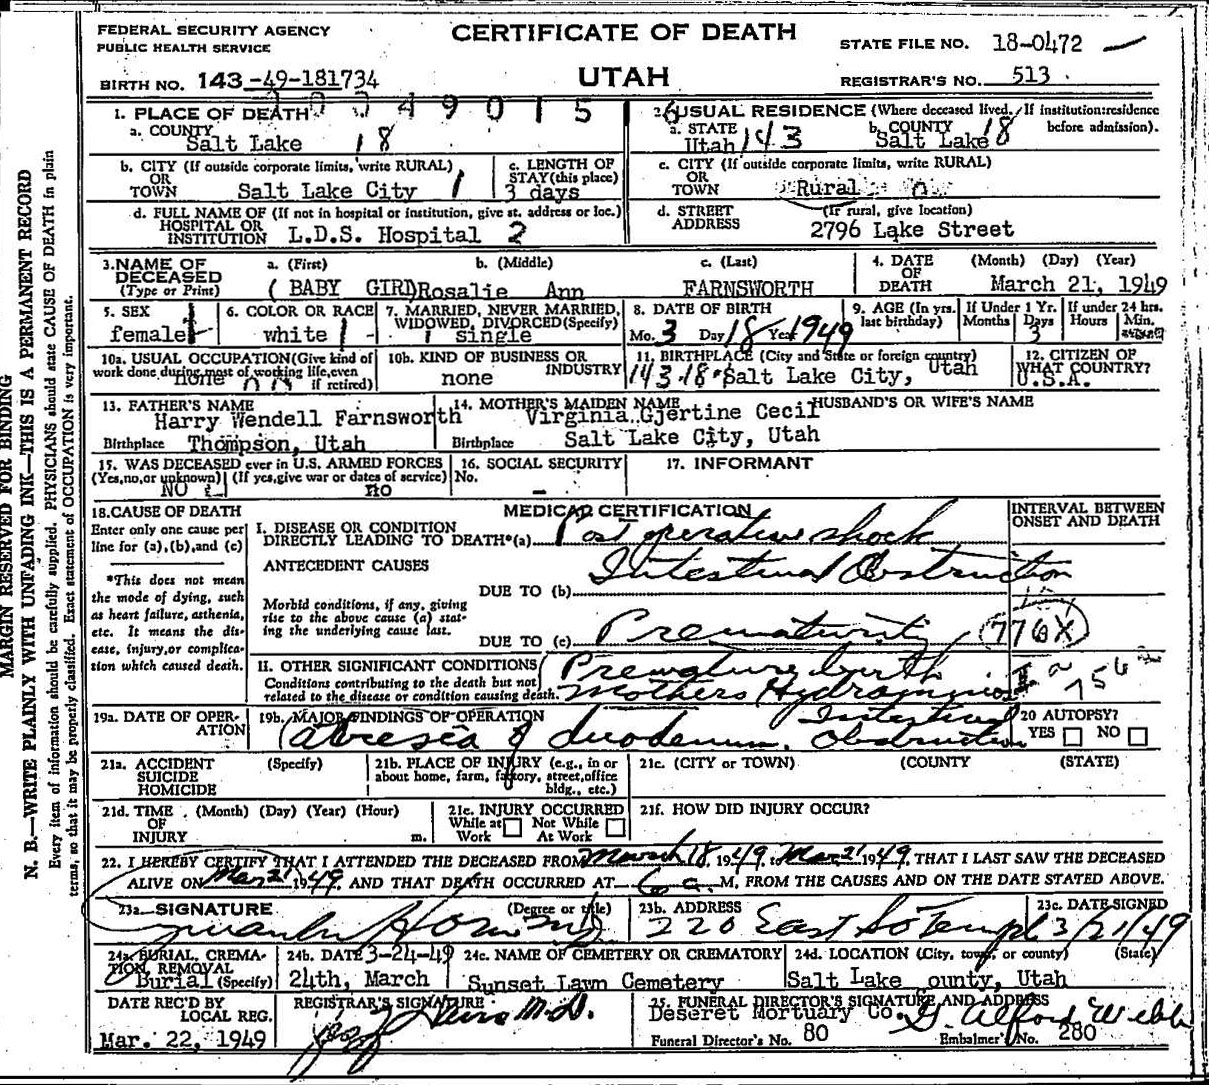 FEDERAL SECURITY AGENCY
PUBLIC HEALTH SERVICE
CERTIFICATE OF DEATH
STATE FILE NO. 18-0472
BIRTH NO. 143-49-181734
UTAH
REGISTRAR'S NO. 513
49015
1. PLACE OF DEATH
a. COUNTY
Salt Lake 18
2. USUAL RESIDENCE (Where deceased lived. If institution:residence
before admission).
a. STATE
Utah 143
b. COUNTY
Salt Lake 18
b. CITY (If outside corporate limits, write RURAL)
OR
TOWN Salt Lake City 1
c. LENGTH OF
STAY(this place)
3 days
c. CITY (If outside corporate limits, write RURAL)
OR
TOWN Rural
d. FULL NAME OF (If not in hospital or institution, give st. address or loc.)
HOSPITAL OR
INSTITUTION L.D.S. Hospital 2
d. STREET
ADDRESS
(If rural, give location)
2796 Lake Street
3.NAME OF
DECEASED
(Type or Print)
a. (First)
b. (Middle)
c. (Last)
(BABY GIRL) Rosalie Ann FARNSWORTH
4. DATE
OF
DEATH
(Month) (Day) (Year)
March 21, 1949
5. SEX
female
6. COLOR OR RACE
white 1
7. MARRIED, NEVER MARRIED,
WIDOWED, DIVORCED(Specify)
1 single
8. DATE OF BIRTH
Mo. 3 Day 18 Year 1949
9. AGE (In yrs.
last birthday)
If Under 1 Yr.
Months Days
3
If under 24 hrs.
Hours Min.
10a. USUAL OCCUPATION(Give kind of
work done during most of working life,even
if retired)
none
10b. KIND OF BUSINESS OR
INDUSTRY
none
11. BIRTHPLACE (City and State or foreign country)
143.18 Salt Lake City, Utah
12. CITIZEN OF
WHAT COUNTRY?
U.S.A.
13. FATHER'S NAME
Harry Wendell Farnsworth
Birthplace Thompson, Utah
14. MOTHER'S MAIDEN NAME
Virginia Gjertine Cecil
Birthplace Salt Lake City, Utah
HUSBAND'S OR WIFE'S NAME
15. WAS DECEASED ever in U.S. ARMED FORCES
(Yes,no,or unknown) (If yes,give war or dates of service)
NO no
16. SOCIAL SECURITY
No. -
17. INFORMANT
18.CAUSE OF DEATH
Enter only one cause per
line for (a),(b),and (c)
*This does not mean
the mode of dying, such
as heart failure, asthenia,
etc. It means the dis-
ease, injury,or complica-
tion which caused death.
MEDICAL CERTIFICATION
INTERVAL BETWEEN
ONSET AND DEATH
I. DISEASE OR CONDITION
DIRECTLY LEADING TO DEATH*(a) Post operative shock
ANTECEDENT CAUSES
Intestinal Obstruction
DUE TO (b)
Morbid conditions, if any, giving
rise to the above cause (a) stat-
ing the underlying cause last.
DUE TO (c) Prematurity
776X
II. OTHER SIGNIFICANT CONDITIONS
Conditions contributing to the death but not
related to the disease or condition causing death.
Premature birth
Mothers Hydramnios
756
19a. DATE OF OPER-
ATION
19b. MAJOR FINDINGS OF OPERATION
Atresia of duodenum. Intestinal
Obstruction
20 AUTOPSY?
YES NO
21a. ACCIDENT
SUICIDE
HOMICIDE
(Specify)
21b. PLACE OF INJURY (e.g., in or
about home, farm, factory, street,office
bldg., etc.)
21c. (CITY or TOWN) (COUNTY) (STATE)
21d. TIME (Month) (Day) (Year) (Hour)
OF
INJURY m.
21e. INJURY OCCURRED
While at Work Not While At Work
21f. HOW DID INJURY OCCUR?
22. I HEREBY CERTIFY THAT I ATTENDED THE DECEASED FROM March 18, 1949, to Mar 21 1949, THAT I LAST SAW THE DECEASED
ALIVE ON Mar 21 1949, AND THAT DEATH OCCURRED AT 6 a.M, FROM THE CAUSES AND ON THE DATE STATED ABOVE.
23a SIGNATURE (Degree or title)
23b. ADDRESS
220 East So Templ
23c. DATE SIGNED
3/21/49
24a. BURIAL, CREMA-
TION, REMOVAL
Burial (Specify)
24b. DATE 3-24-49
24th, March
24c. NAME OF CEMETERY OR CREMATORY
Sunset Lawn Cemetery
24d. LOCATION (City, town, or county) (State)
Salt Lake ounty, Utah
DATE REC'D BY
LOCAL REG.
Mar. 22, 1949
REGISTRAR'S SIGNATURE
M.D.
25. FUNERAL DIRECTOR'S SIGNATURE AND ADDRESS
Deseret Mortuary Co. G. Alford Webb
Funeral Director's No. 80 Embalmer's No. 280
MARGIN RESERVED FOR BINDING
N. B.—WRITE PLAINLY WITH UNFADING INK—THIS IS A PERMANENT RECORD
Every item of information should be carefully supplied. PHYSICIANS should state CAUSE OF DEATH in plain
terms, so that it may be properly classified. Exact statement of OCCUPATION is very important.